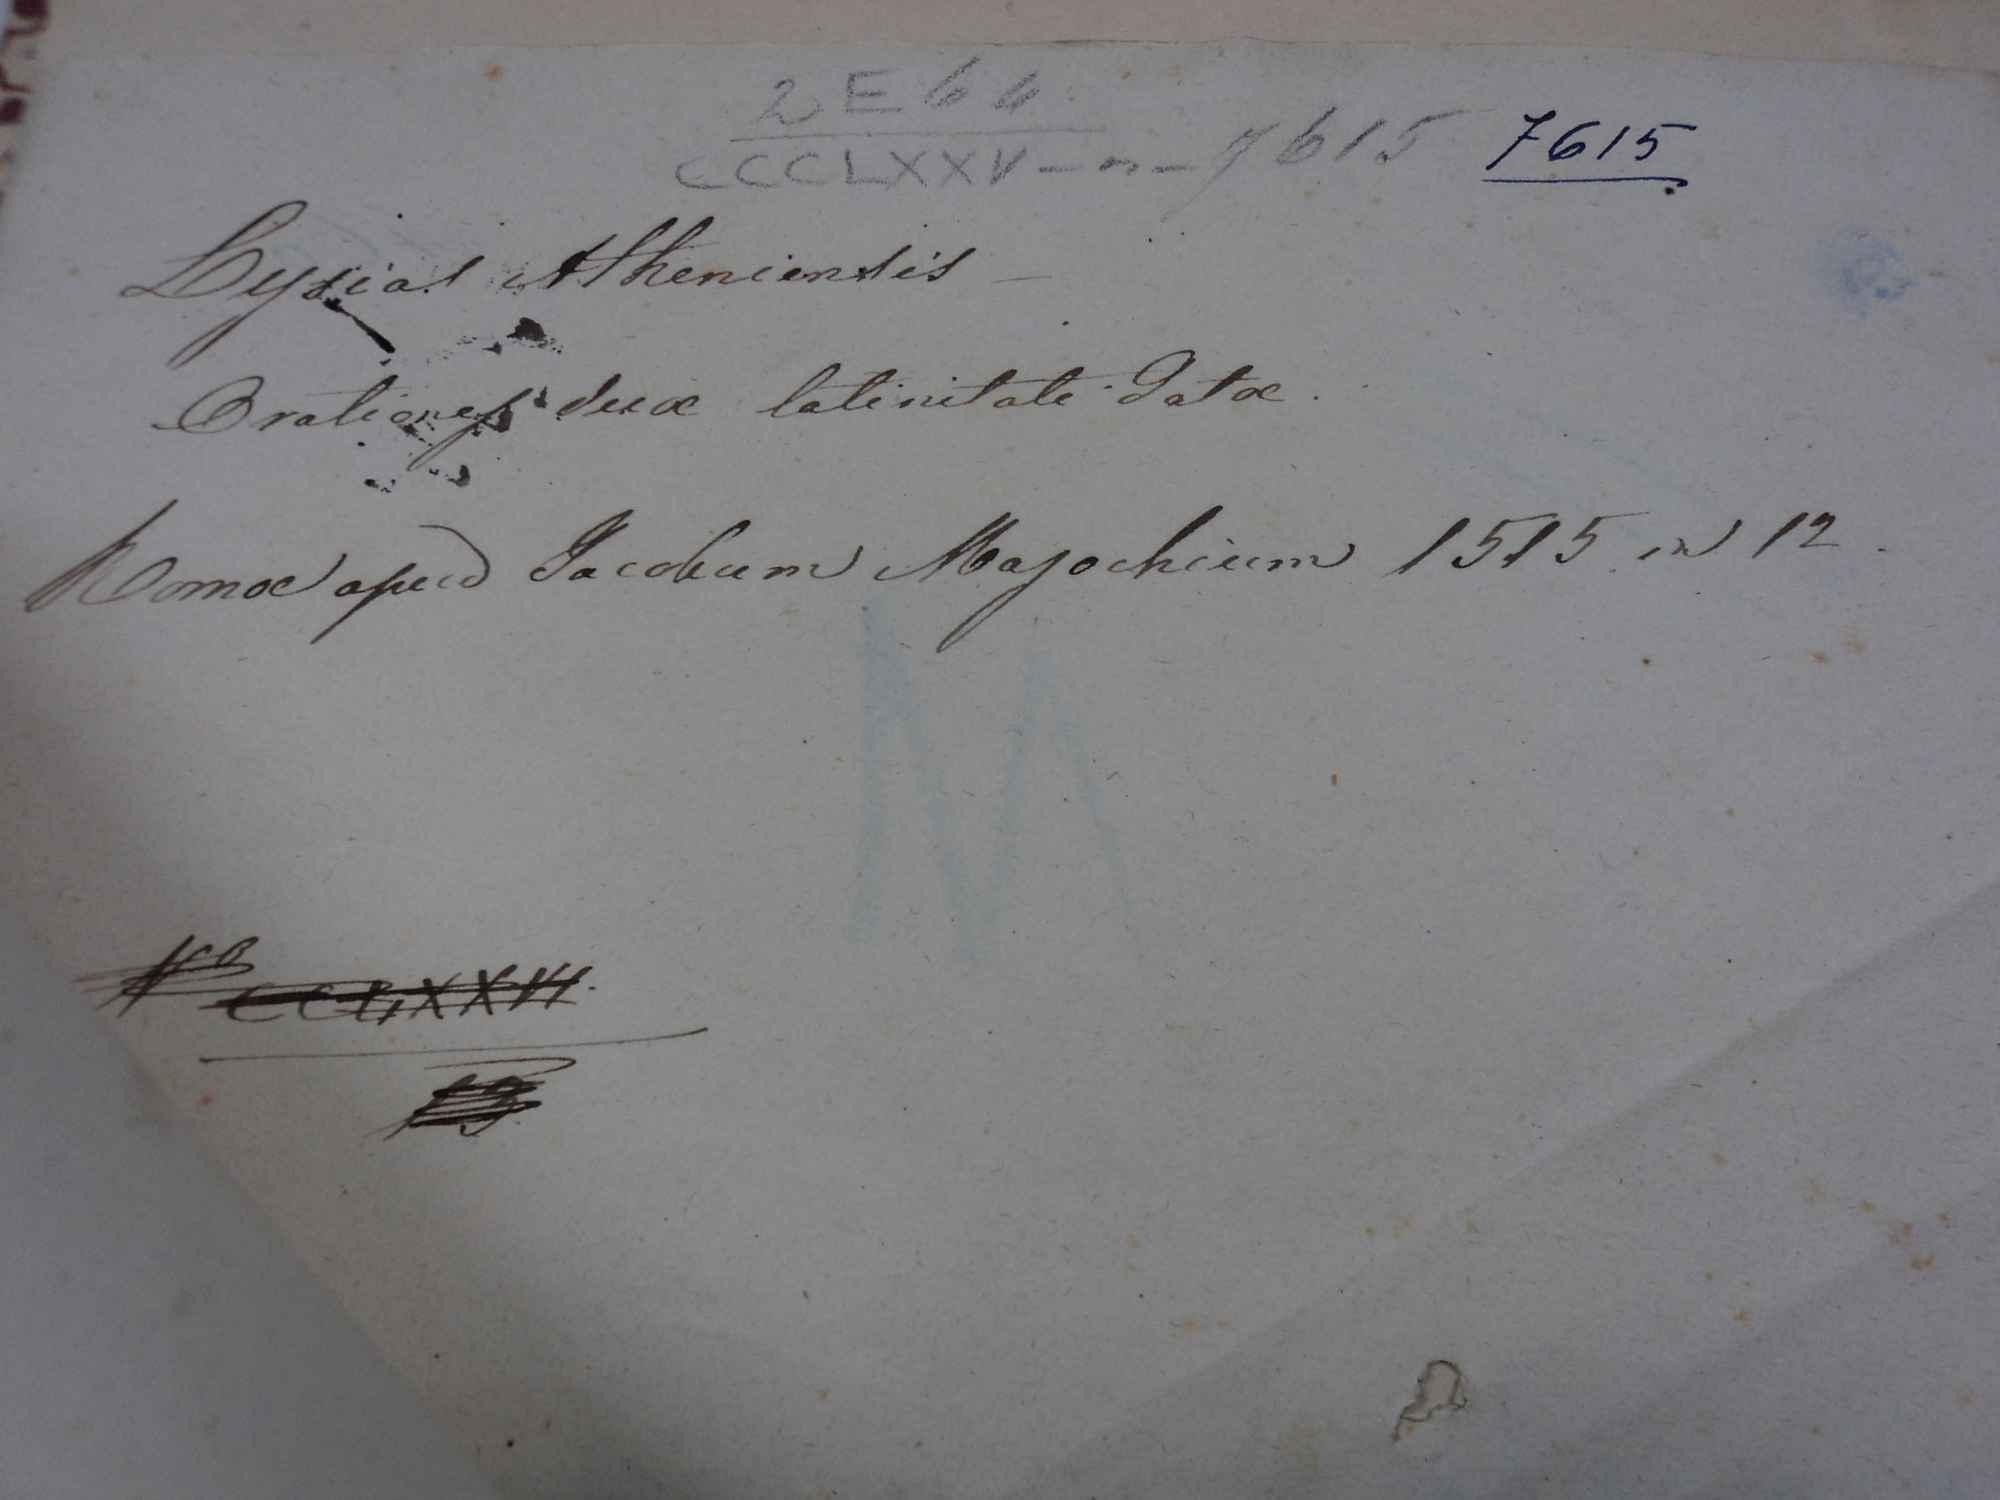 2 E 64
CCCLXXV - n - 7615 7615
Lysias Atheniensis -
Orationes duæ latinitate datæ.
Romæ apud Jacobum Majochium 1515 in 12.
CCLXXVI.